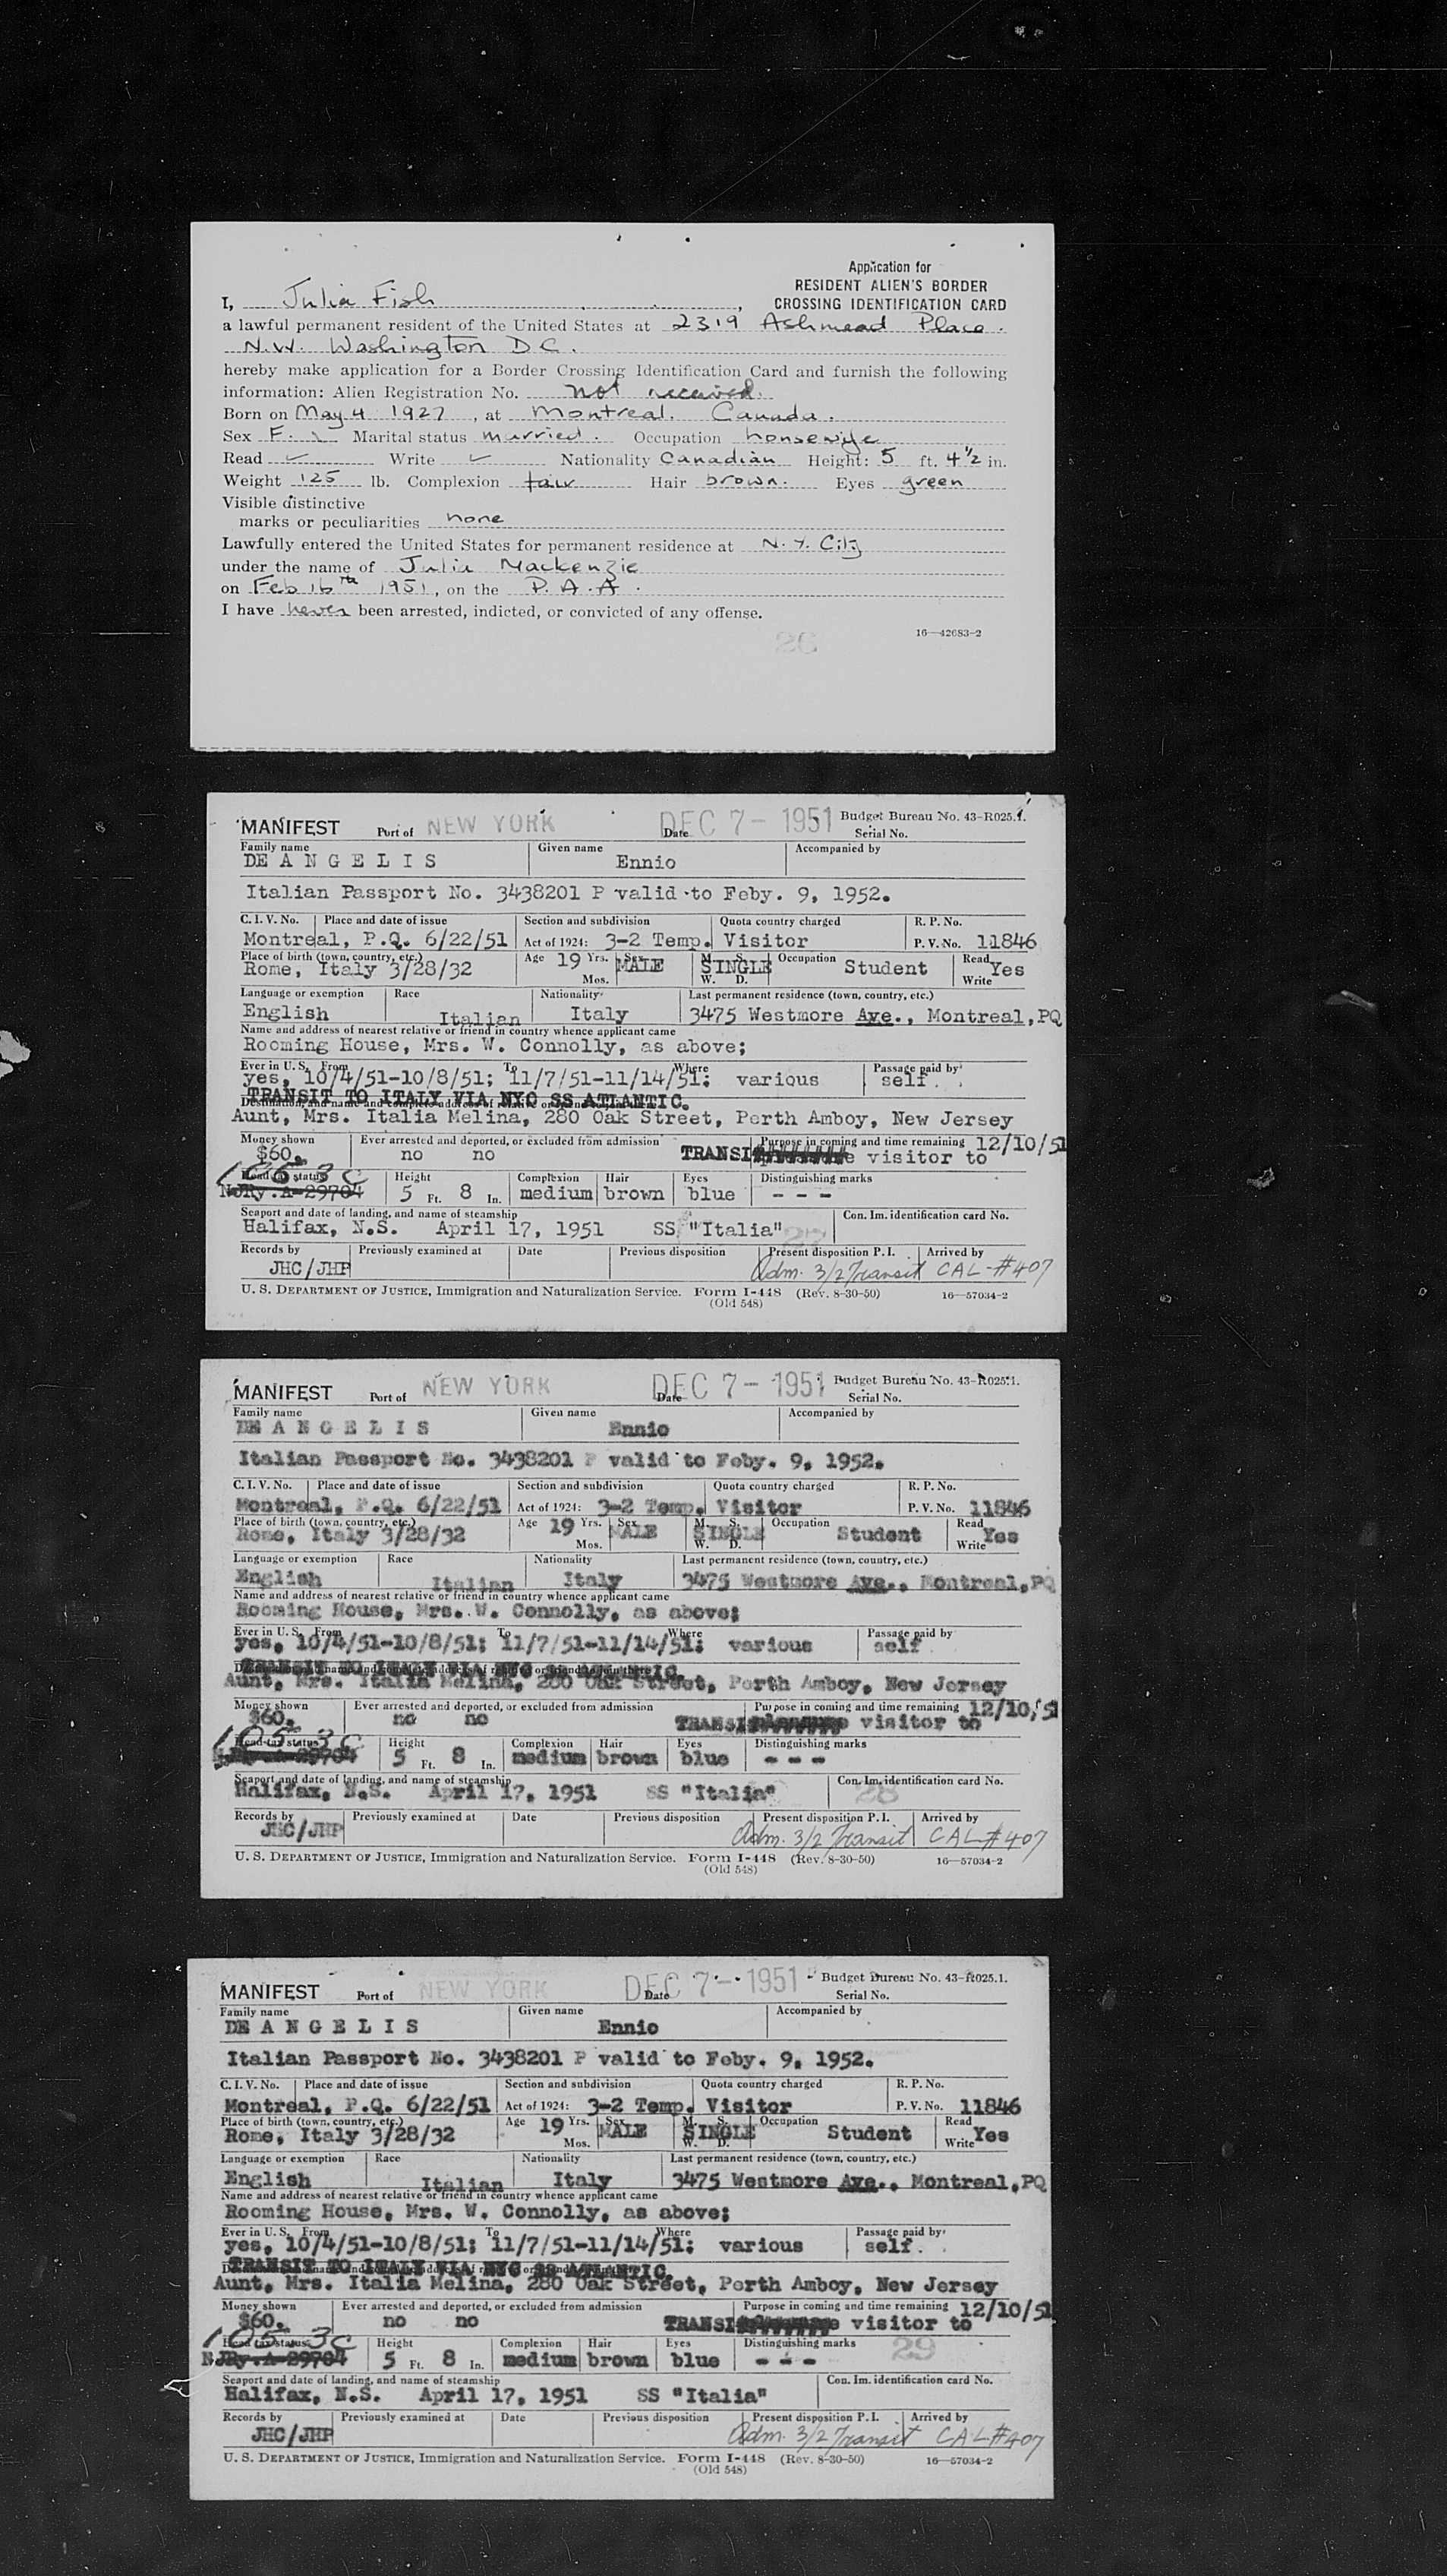 Application for
RESIDENT ALIEN'S BORDER
CROSSING IDENTIFICATION CARD
I, Julia Fish,
a lawful permanent resident of the United States at 2319 Ashmead Place.
N.W. Washington D.C.
hereby make application for a Border Crossing Identification Card and furnish the following
information: Alien Registration No. not received.
Born on May 4 1927, at Montreal. Canada.
Sex F. Marital status married. Occupation housewife
Read ✓ Write ✓ Nationality Canadian Height: 5 ft. 4 1/2 in.
Weight 125 lb. Complexion fair Hair brown. Eyes green
Visible distinctive
marks or peculiarities none
Lawfully entered the United States for permanent residence at N.Y. City
under the name of Julia Mackenzie
on Feb 16th 1951, on the P.A.A.
I have never been arrested, indicted, or convicted of any offense.
16—42683-2
26
MANIFEST Port of NEW YORK Date DEC 7 - 1951 Budget Bureau No. 43-R025.1.
Serial No.
Family name Given name Accompanied by
DE A N G E L I S Ennio
Italian Passport No. 3438201 P valid to Feby. 9, 1952.
C. I. V. No. Place and date of issue Section and subdivision Quota country charged R. P. No.
Montreal, P.Q. 6/22/51 Act of 1924: 3-2 Temp. Visitor P. V. No. 11846
Place of birth (town, country, etc.) Age 19 Yrs. Sex MALE M. S. SINGLE Occupation Student Read Yes
Rome, Italy 3/28/32 Mos. W. D. Write
Language or exemption Race Nationality Last permanent residence (town, country, etc.)
English Italian Italy 3475 Westmore Ave., Montreal,PQ
Name and address of nearest relative or friend in country whence applicant came
Rooming House, Mrs. W. Connolly, as above;
Ever in U. S. From To Where Passage paid by
yes, 10/4/51-10/8/51; 11/7/51-11/14/51; various self
TRANSIT TO ITALY VIA NYC SS ATLANTIC.
Destination, and name and complete address of relative or friend to join there
Aunt, Mrs. Italia Melina, 280 Oak Street, Perth Amboy, New Jersey
Money shown Ever arrested and deported, or excluded from admission Purpose in coming and time remaining 12/10/51
$60. no no TRANSIT visitor to
1053C
Head tax status Height Complexion Hair Eyes Distinguishing marks
NJRy.A-29704 5 Ft. 8 In. medium brown blue - - -
Seaport and date of landing, and name of steamship Con. Im. identification card No.
Halifax, N.S. April 17, 1951 SS "Italia" 27
Records by Previously examined at Date Previous disposition Present disposition P. I. Arrived by
JHC/JHP Adm. 3/2 Transit CAL-#407
U. S. DEPARTMENT OF JUSTICE, Immigration and Naturalization Service. Form I-448 (Rev. 8-30-50) 16—57034-2
(Old 548)
MANIFEST Port of NEW YORK Date DEC 7 - 1951 Budget Bureau No. 43-R025.1.
Serial No.
Family name Given name Accompanied by
DE A N G E L I S Ennio
Italian Passport No. 3438201 P valid to Feby. 9, 1952.
C. I. V. No. Place and date of issue Section and subdivision Quota country charged R. P. No.
Montreal, P.Q. 6/22/51 Act of 1924: 3-2 Temp. Visitor P. V. No. 11846
Place of birth (town, country, etc.) Age 19 Yrs. Sex MALE M. S. SINGLE Occupation Student Read Yes
Rome, Italy 3/28/32 Mos. W. D. Write
Language or exemption Race Nationality Last permanent residence (town, country, etc.)
English Italian Italy 3475 Westmore Ave., Montreal,PQ
Name and address of nearest relative or friend in country whence applicant came
Rooming House, Mrs. W. Connolly, as above;
Ever in U. S. From To Where Passage paid by
yes, 10/4/51-10/8/51; 11/7/51-11/14/51; various self
TRANSIT TO ITALY VIA NYC SS ATLANTIC.
Destination, and name and complete address of relative or friend to join there
Aunt, Mrs. Italia Melina, 280 Oak Street, Perth Amboy, New Jersey
Money shown Ever arrested and deported, or excluded from admission Purpose in coming and time remaining 12/10/51
$60. no no TRANSIT visitor to
1053C
Head tax status Height Complexion Hair Eyes Distinguishing marks
29704 5 Ft. 8 In. medium brown blue - - -
Seaport and date of landing, and name of steamship Con. Im. identification card No.
Halifax, N.S. April 17, 1951 SS "Italia" 28
Records by Previously examined at Date Previous disposition Present disposition P. I. Arrived by
JHC/JHP Adm. 3/2 Transit CAL#407
U. S. DEPARTMENT OF JUSTICE, Immigration and Naturalization Service. Form I-448 (Rev. 8-30-50) 16—57034-2
(Old 548)
MANIFEST Port of NEW YORK Date DEC 7 - 1951 Budget Bureau No. 43-R025.1.
Serial No.
Family name Given name Accompanied by
DE A N G E L I S Ennio
Italian Passport No. 3438201 P valid to Feby. 9, 1952.
C. I. V. No. Place and date of issue Section and subdivision Quota country charged R. P. No.
Montreal, P.Q. 6/22/51 Act of 1924: 3-2 Temp. Visitor P. V. No. 11846
Place of birth (town, country, etc.) Age 19 Yrs. Sex MALE M. S. SINGLE Occupation Student Read Yes
Rome, Italy 3/28/32 Mos. W. D. Write
Language or exemption Race Nationality Last permanent residence (town, country, etc.)
English Italian Italy 3475 Westmore Ave., Montreal,PQ
Name and address of nearest relative or friend in country whence applicant came
Rooming House, Mrs. W. Connolly, as above;
Ever in U. S. From To Where Passage paid by
yes, 10/4/51-10/8/51; 11/7/51-11/14/51; various self
TRANSIT TO ITALY VIA NYC SS ATLANTIC.
Aunt, Mrs. Italia Melina, 280 Oak Street, Perth Amboy, New Jersey
Money shown Ever arrested and deported, or excluded from admission Purpose in coming and time remaining 12/10/51
$60. no no TRANSIT visitor to
1053C
Head tax status Height Complexion Hair Eyes Distinguishing marks 29
NJRy.A-29704 5 Ft. 8 In. medium brown blue - - -
Seaport and date of landing, and name of steamship Con. Im. identification card No.
Halifax, N.S. April 17, 1951 SS "Italia"
Records by Previously examined at Date Previous disposition Present disposition P. I. Arrived by
JHC/JHP Adm. 3/2 Transit CAL#407
U. S. DEPARTMENT OF JUSTICE, Immigration and Naturalization Service. Form I-448 (Rev. 8-30-50) 16—57034-2
(Old 548)